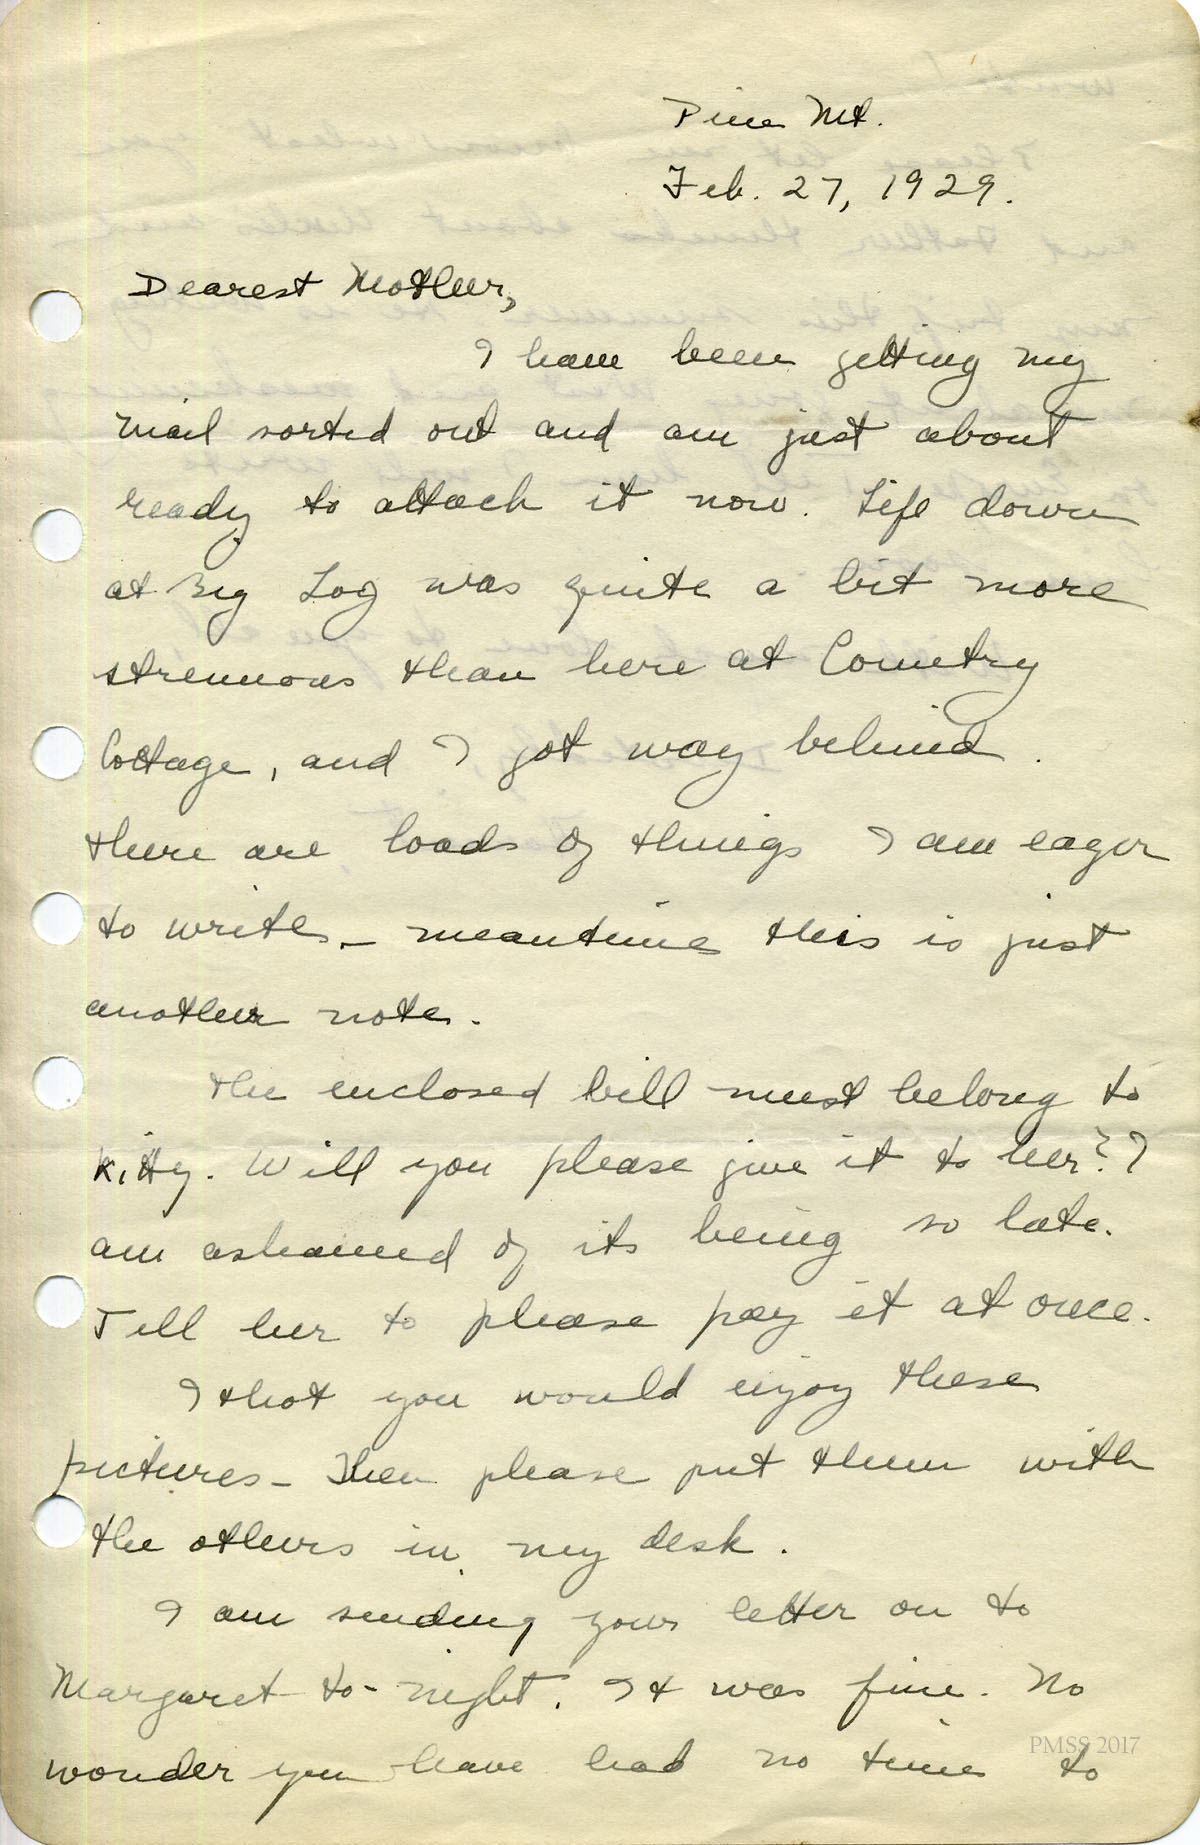 Pine Mt.
Feb. 27, 1929.
Dearest Mother,
I have been getting my
mail sorted out and am just about
ready to attack it now. Life down
at Big Log was quite a bit more
strenuous than here at Country
Cottage, and I got way behind.
there are loads of things I am eager
to write - meantime this is just
another note.
the enclosed bill must belong to
Kitty. Will you please give it to her? I
am ashamed of its being so late.
Tell her to please pay it at once.
I thot you would enjoy these
pictures - Then please put them with
the others in my desk.
I am sending your letter on to
Margaret to-night. It was fine. No
wonder you have had no time to
PMSS 2017